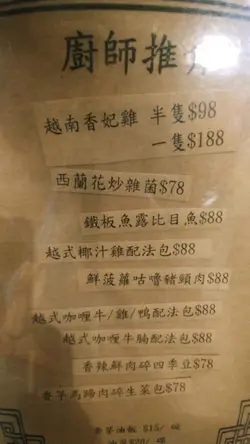 廚師推
越南香妃雞 半隻$98
一隻$188
西蘭花炒雜菌$78
鐵板魚露比目魚$88
越式椰汁雞配法包$88
鮮菠蘿咕嚕豬頸肉$88
越式咖喱牛/雞/鴨配法包$88
越式咖喱牛腩配法包$88
香辣鮮肉碎四季豆$78
香茅馬蹄肉碎生菜包$78
香茅油飯 $15/ 碗